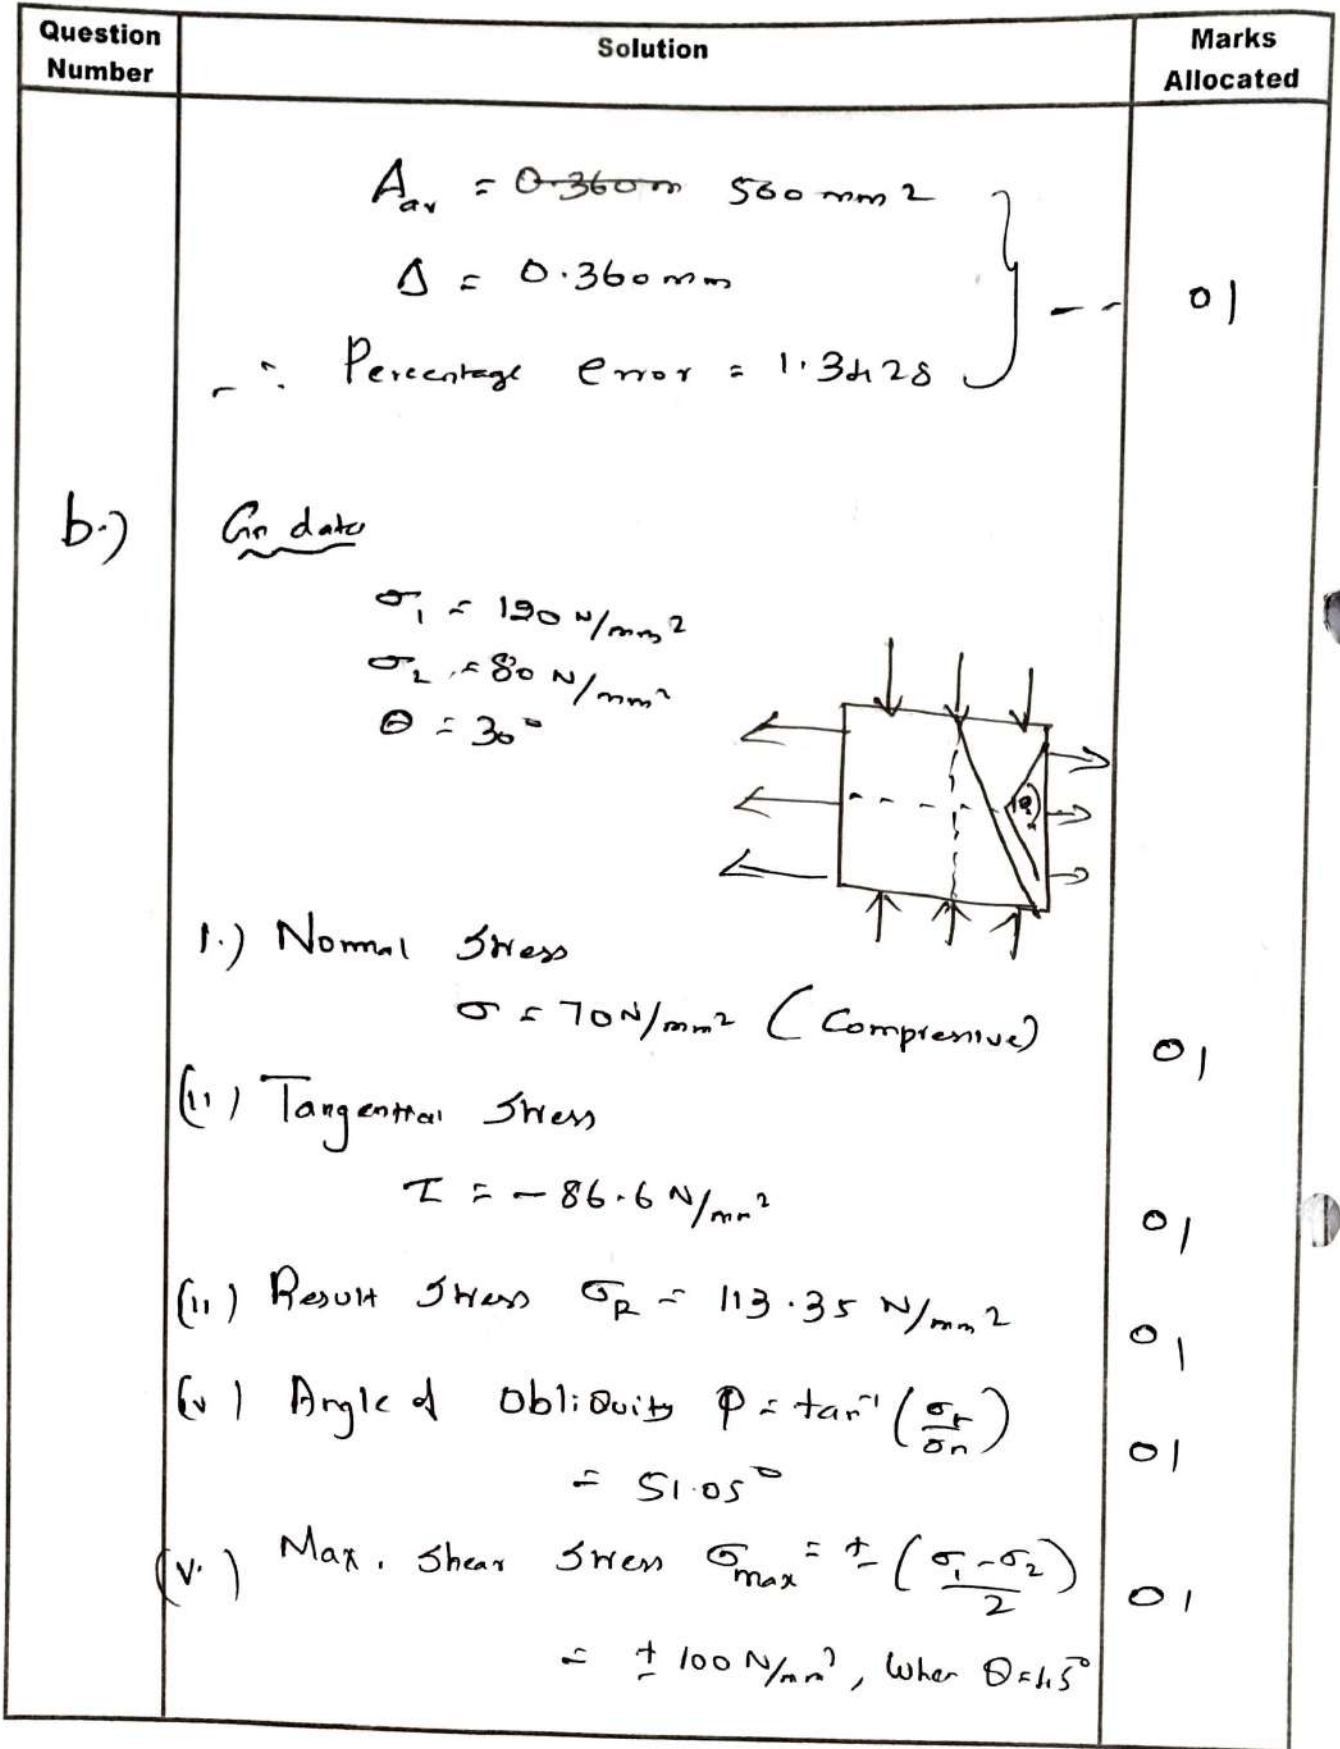 Question Number
Solution
Marks Allocated
A_av = 0.360m 560 mm 2
Δ = 0.360 mm
∴ Percentage error = 1.3428
01
b.)
Gn data
σ1 = 120 N/mm2
σ2 = 80 N/mm2
θ = 30°
θ
1.) Normal Stress
σ = 70 N/mm2 (Compressive)
01
(ii) Tangential Stress
τ = - 86.6 N/mm2
01
(ii) Result Stress σR = 113.35 N/mm2
01
(v) Angle of Obliquity φ = tan-1 (σt/σn)
01
= 51.05°
(v.) Max. Shear Stress σmax = ± (σ1-σ2/2)
01
= ± 100 N/mm2, When θ=45°